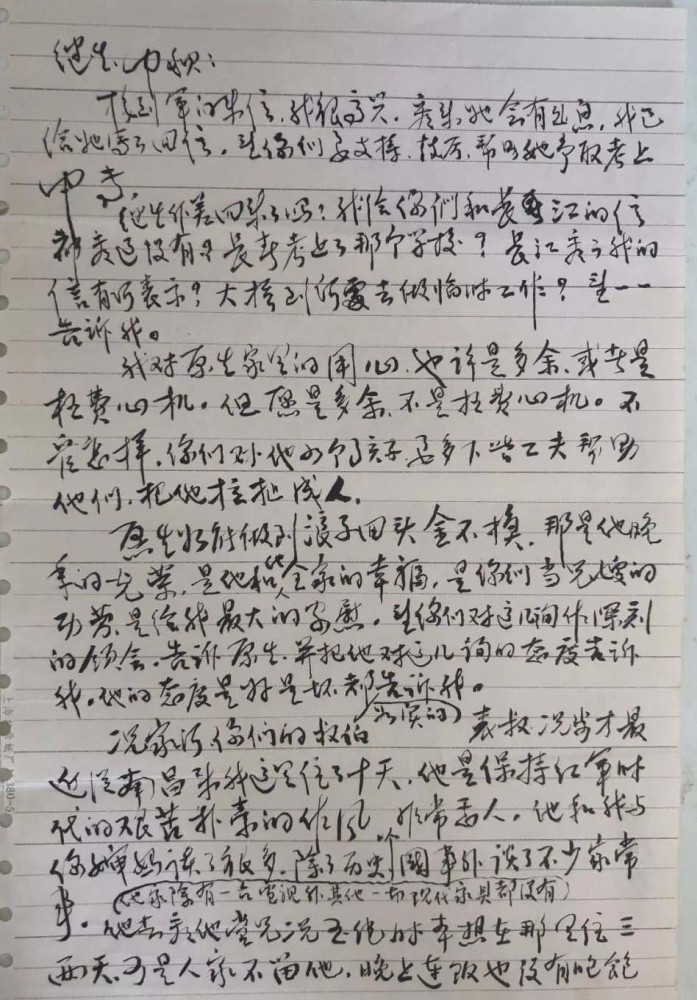 继生、巾帼:
接到军的来信,我很高兴,看来她会有出息,我已
给她写了回信,望你们要支持、鼓励、帮助她争取考上
中专。
继生外差回来了吗?我给你们和长江的信
都看过没有?长春考上了那个学校?长江看了我的
信有所表示?大核到何处去做临时工作?望一一
告诉我。
我对原生家里的用心,也许是多余,或者是
枉费心机。但愿是多余,不是枉费心机。不
管怎样,你们对他的孩子要多下些工夫帮助
他们,把他核扯成人。
原生如能做到浪子回头金不换,那是他晚
年的光荣,是他和他人全家的幸福,是你们当兄嫂的
功劳,是给我最大的安慰。望你们对这几询作深刻
的领会,告诉原生,并把他对这几询的态度告诉
我。他的态度是好是坏都告诉我。
况家
你们的叔伯
表叔况步才最
近从南昌来我这里住了十天,他是保持红军时
代的艰苦朴素的作风,非常喜人。他和我与
你婶妈谈了很多,除了历史、国事外,谈了不少家常
(他家除有一台电视外其他一切现代家具都没有)
事。他去看他堂兄况玉纯时本想在那里住三
两天,可是人家不留他,晚上连饭也没有吃饱
上海
380-5